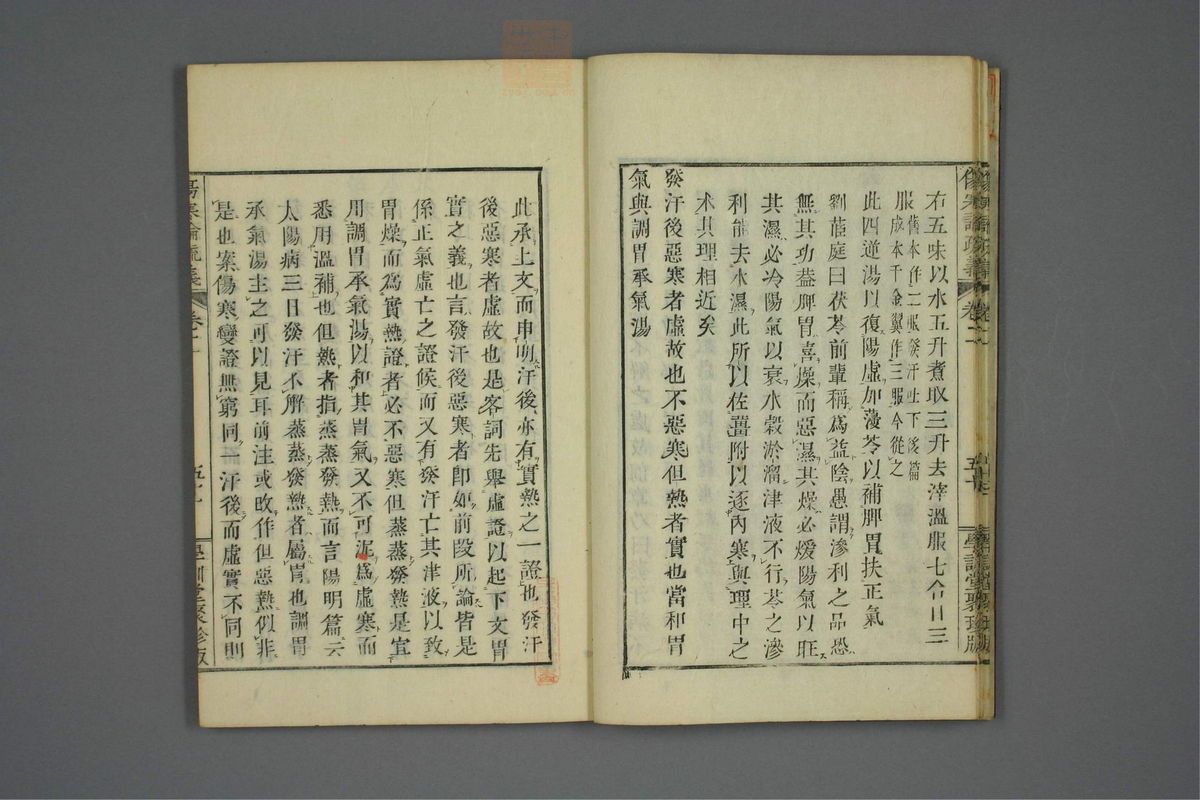 右五味以水五升煮取三升去滓溫服七合日三
服舊本作二服發汗吐下後篇
成本千金翼作三服今從之
此四逆湯以復陽虛加茯苓以補脾胃扶正氣
劉茝庭曰茯苓前輩稱爲益陰愚謂滲利之品恐
無其功蓋脾胃喜燥而惡濕其燥必煖陽氣以旺
其濕必冷陽氣以衰水穀淤溜津液不行苓之滲
利能去水濕此所以佐薑附以逐內寒與理中之
朮其理相近矣
發汗後惡寒者虛故也不惡寒但熱者實也當和胃
氣與調胃承氣湯
傷寒論疏義
卷二
五十
學訓堂聚珍版
此承上文而申明汗後亦有實熱之一證也發汗
後惡寒者虛故也是客詞先舉虛證以起下文胃
實之義也言發汗後惡寒者卽如前段所論皆是
係正氣虛亡之證候而又有發汗亡其津液以致
胃燥而爲實熱證者必不惡寒但蒸蒸發熱是宜
用調胃承氣湯以和其胃氣又不可泥爲虛寒而
悉用溫補也但熱者指蒸蒸發熱而言陽明篇云
太陽病三日發汗不解蒸蒸發熱者屬胃也調胃
承氣湯主之可以見耳前注或改作但惡熱似非
是也案傷寒變證無窮同一汗後而虛實不同則